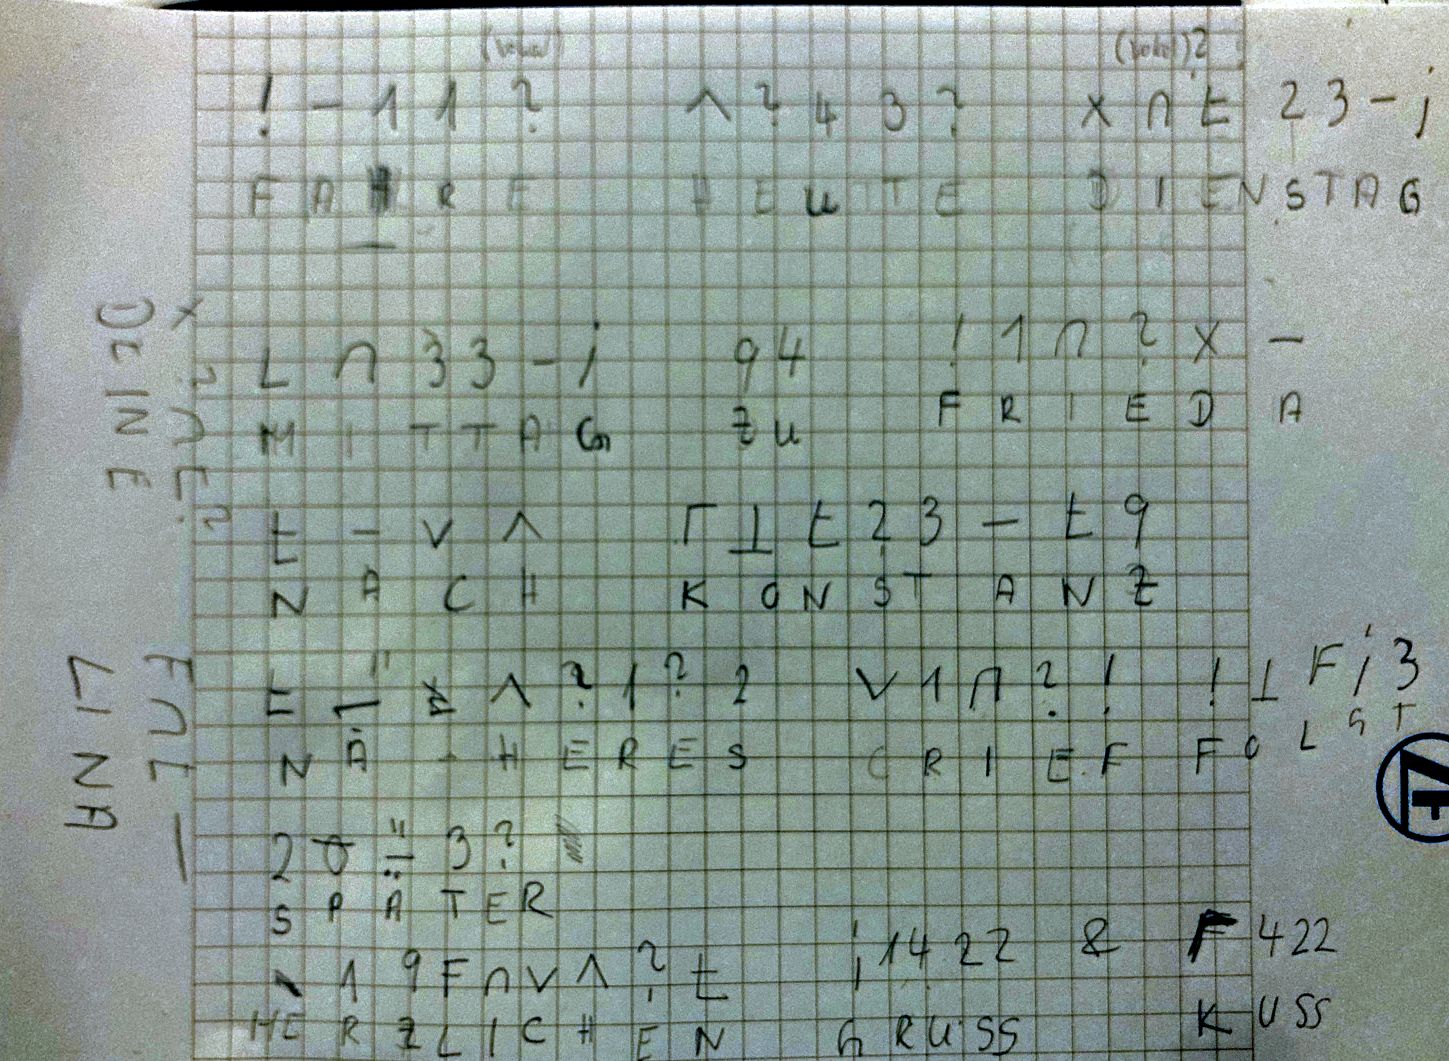 (Vokal) (Vokal)?
! - 1 1 ? ^ ? 4 3 ? x ∩ t 2 3 - j
F A H R E H E U T E D I E N S T A G
L ∩ 3 3 - j 9 4 ! 1 ∩ ? x -
M I T T A G Z U F R I E D A
t - v ^ Γ ⊥ t 2 3 - t 9
N A C H K O N S T A N Z
^ ? 1 ? 2 v 1 ∩ ? ! ! ⊥ F j 3
N Ä - H E R E S C R I E F F O L G T
2 ? 3 ?
S P Ä T E R
1 9 F ∩ v ^ ? t j 1 4 2 2 & F 4 2 2
H E R Z L I C H E N G R U S S K U S S
x ? ∩ t ?
D E I N E
F ∩ t -
L I N A